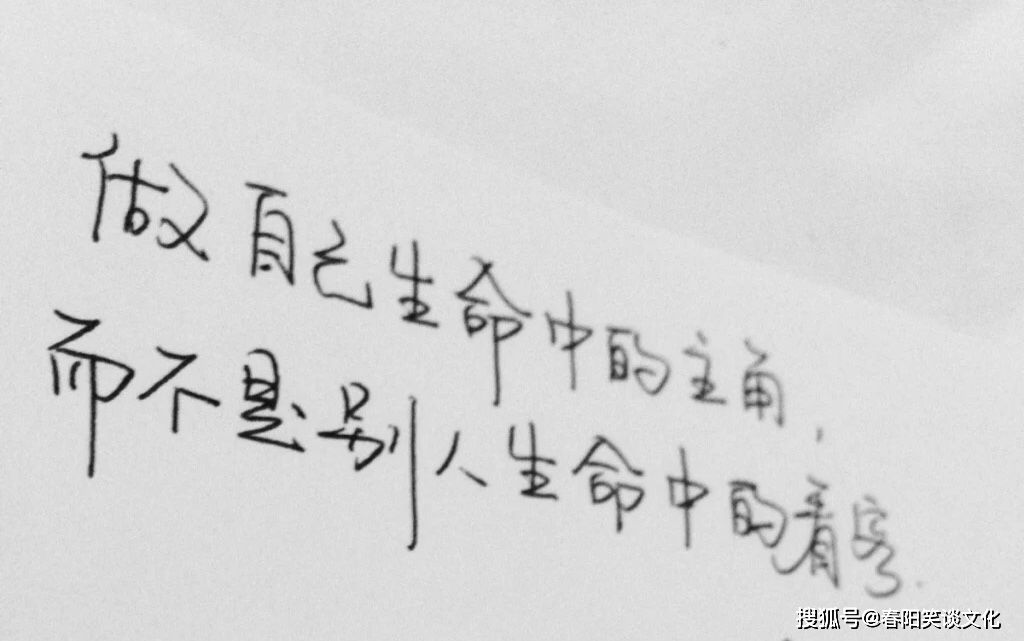 做自己生命中的主角,
而不是别人生命中的看客.
搜狐号@春阳笑谈文化